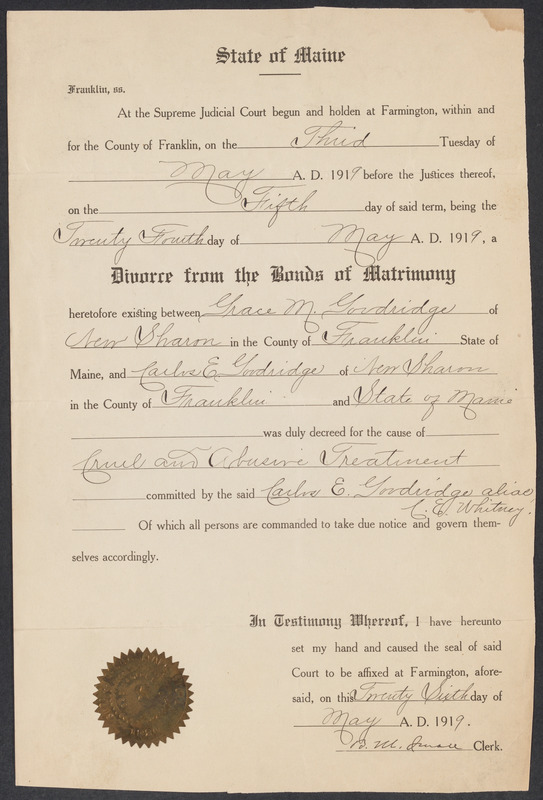 State of Maine
Franklin, ss.
At the Supreme Judicial Court begun and holden at Farmington, within and
for the County of Franklin, on the Third Tuesday of
May A. D. 1919 before the Justices thereof,
on the Fifth day of said term, being the
Twenty Fourth day of May A. D. 1919, a
Divorce from the Bonds of Matrimony
heretofore existing between Grace M. Goodridge of
New Sharon in the County of Franklin State of
Maine, and Carlos E. Goodridge of New Sharon
in the County of Franklin and State of Maine
was duly decreed for the cause of
Cruel and Abusive Treatment
committed by the said Carlos E. Goodridge alias
C. E. Whitney.
Of which all persons are commanded to take due notice and govern them-
selves accordingly.
In Testimony Whereof, I have hereunto
set my hand and caused the seal of said
Court to be affixed at Farmington, afore-
said, on this Twenty Sixth day of
May A. D. 1919.
B. M. Small Clerk.